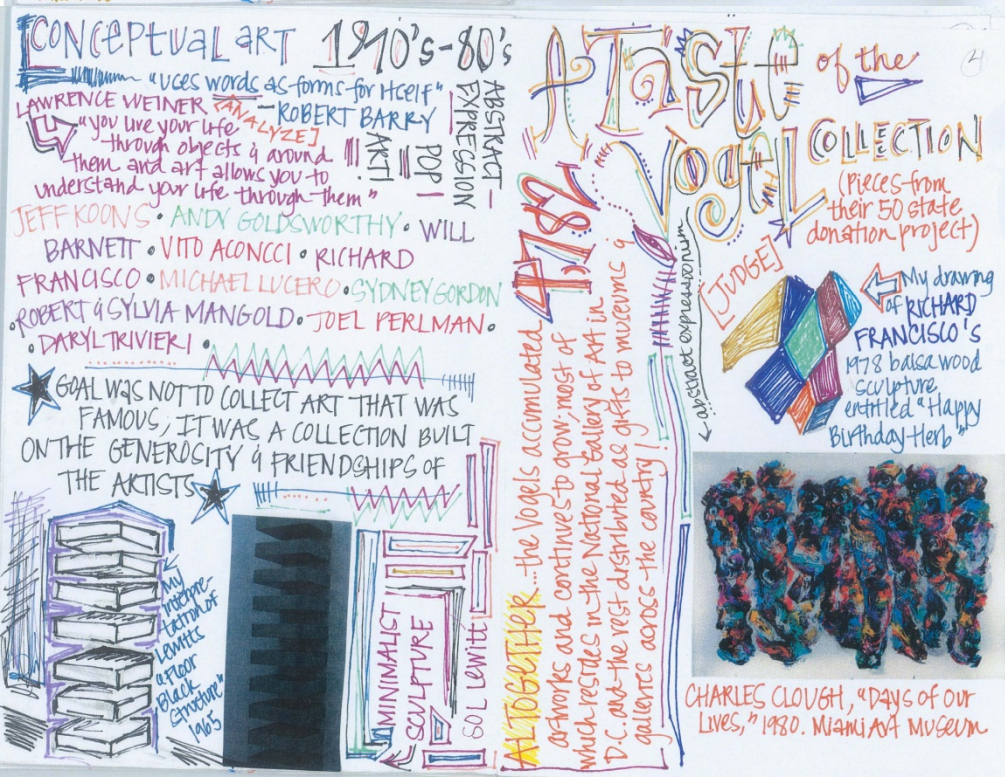 CONCEPTUAL ART 1970's-80's
"uses words as forms for itself"
-ROBERT BARRY
LAWRENCE WEINER [ANALYZE]
"you live your life
through objects & around
them and art allows you to
understand your life through them"
ABSTRACT-
EXPRESSION
POP
ART
JEFF KOONS • ANDY GOLDSWORTHY • WILL
BARNETT • VITO ACONCCI • RICHARD
FRANCISCO • MICHAEL LUCERO • SYDNEY GORDON
• ROBERT & SYLVIA MANGOLD • JOEL PERLMAN •
• DARYL TRIVIERI •
GOAL WAS NOT TO COLLECT ART THAT WAS
FAMOUS, IT WAS A COLLECTION BUILT
ON THE GENEROSITY & FRIENDSHIPS OF
THE ARTISTS
My
interpre-
tation of
Lewitts
"Floor
Black
Structure"
1965
MININALIST
SCULPTURE
SOL Lewitt
A TASTE of the
VOGEL COLLECTION
(Pieces from
their 50 state
donation project)
4,782
ALTOGETHER...the Vogels accumulated
artworks and continues to grow; most of
which resides in the National Gallery of Art in
D.C. and the rest distributed as gifts to museums &
galleries across the country!
abstract expressionism
[JUDGE]
My drawing
of RICHARD
FRANCISCO'S
1978 balsa wood
sculpture
entitled "Happy
Birthday Herb"
CHARLES CLOUGH, "DAYS OF OUR
LIVES," 1980. Miami Art Museum